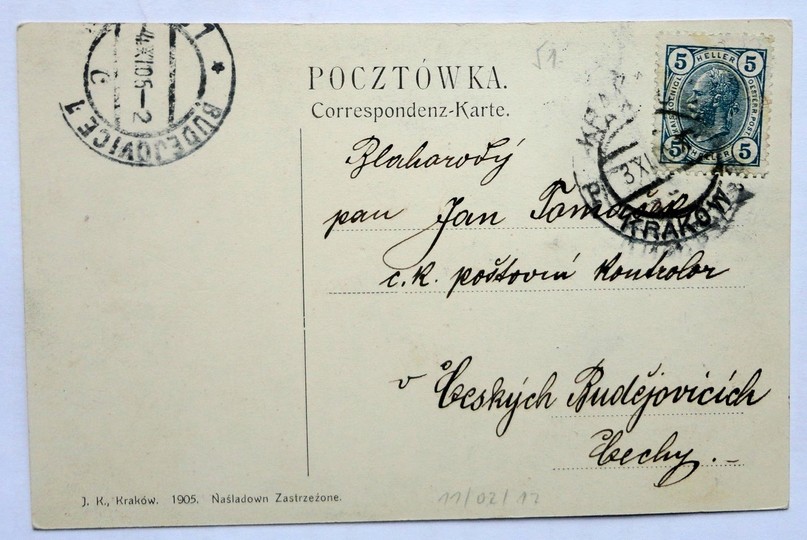 BUDEJOVICE 1
4 XI 05-2
c
51.
POCZTÓWKA.
Correspondenz-Karte.
5 HELLER 5
5 HELLER 5
KRAKÓW
3 XI
Blahorodý
pan Jan Tomášek
c.k. poštovní kontrolor
v Českých Budějovicích
Čechy.-
J. K., Kraków. 1905. Naśladown Zastrzeżone.
11/02/12